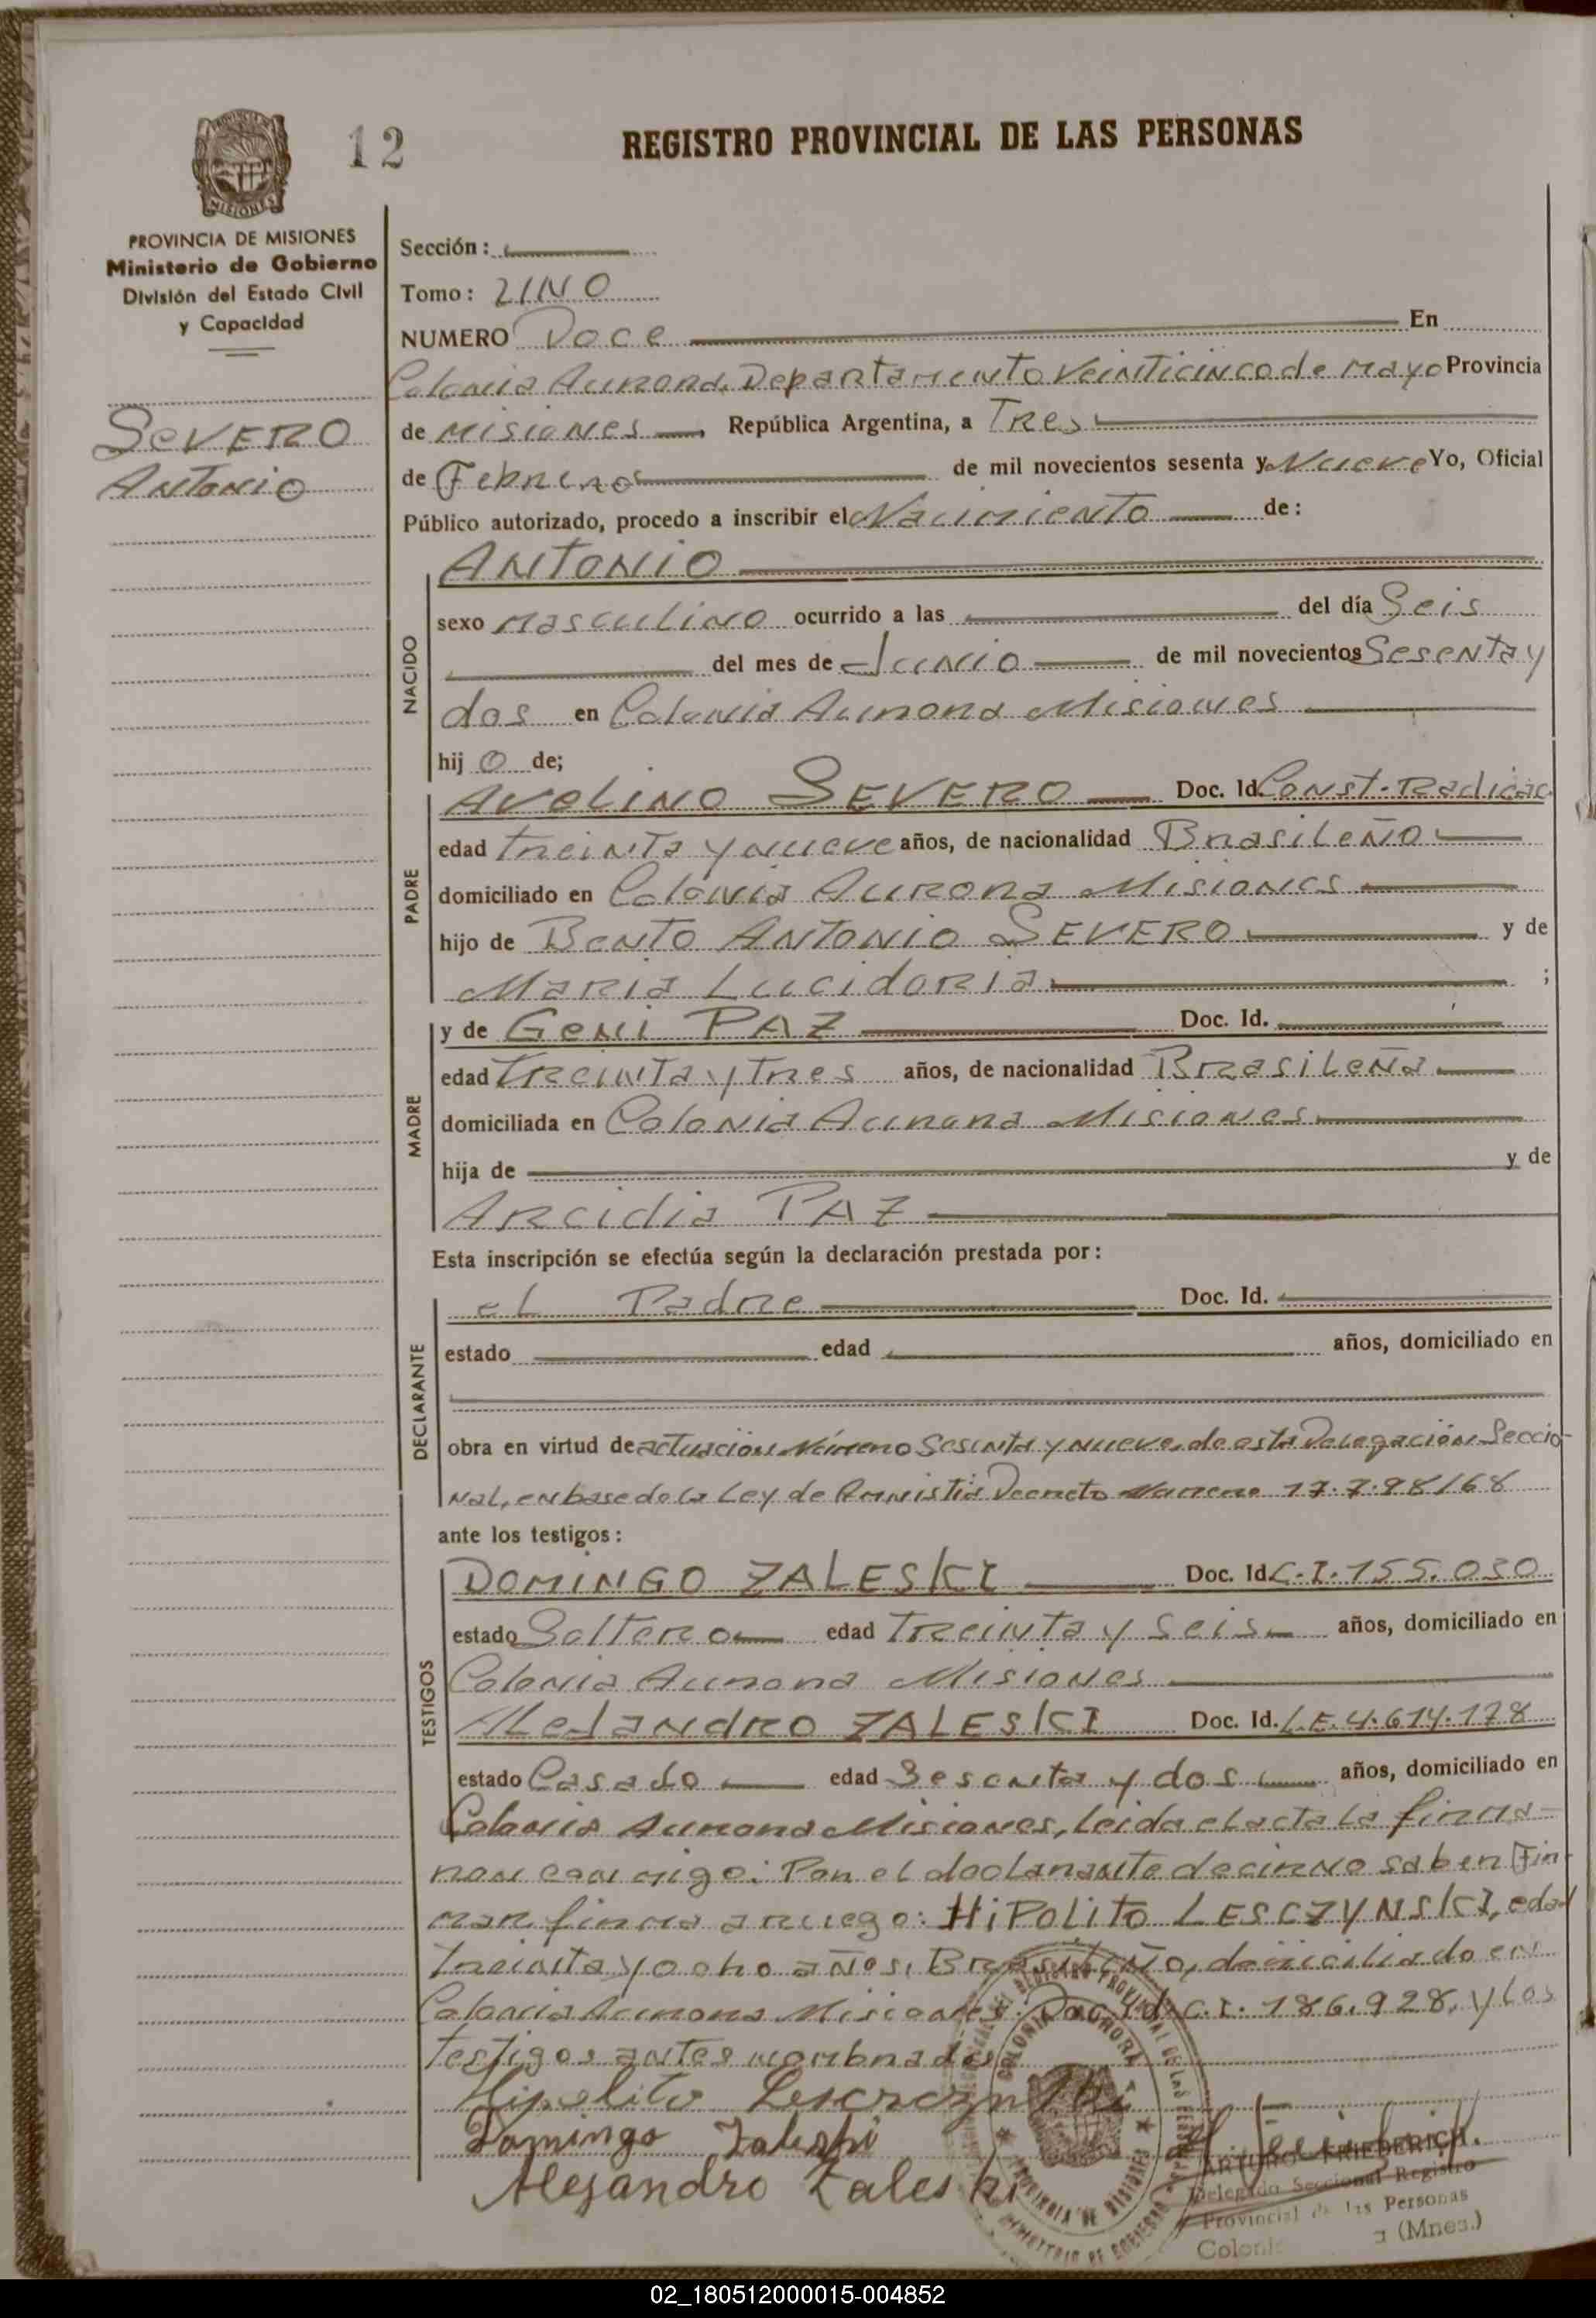 12
REGISTRO PROVINCIAL DE LAS PERSONAS
MISIONES
PROVINCIA DE MISIONES
Ministerio de Gobierno
División del Estado Civil
y Capacidad
SEVERO
ANTONIO
Sección:
Tomo: UNO
NUMERO Doce En
Colonia Aurora, Departamento Veinticinco de Mayo Provincia
de Misiones, República Argentina, a Tres
de Febrero de mil novecientos sesenta y Nueve Yo, Oficial
Público autorizado, procedo a inscribir el Nacimiento de:
NACIDO
ANTONIO
sexo masculino ocurrido a las del día Seis
del mes de Junio de mil novecientos Sesenta y
dos en Colonia Aurora Misiones
hij o de;
PADRE
AVELINO SEVERO Doc. Id. Const. Radicac.
edad treinta y nueve años, de nacionalidad Brasileño
domiciliado en Colonia Aurora Misiones
hijo de Bento ANTONIO SEVERO y de
Maria Lucidoria ;
MADRE
y de Geni PAZ Doc. Id.
edad treinta y tres años, de nacionalidad Brasileña
domiciliada en Colonia Aurora Misiones
hija de y de
Arcidia PAZ
Esta inscripción se efectúa según la declaración prestada por:
DECLARANTE
el Padre Doc. Id.
estado edad años, domiciliado en
obra en virtud de actuación Número Sesenta y nueve, de esta Delegación Seccio-
nal, en base de la Ley de Amnistia Decreto Numero 17.798/68
ante los testigos:
TESTIGOS
DOMINGO ZALESKI Doc. Id. C.I. 155.030
estado Soltero edad Treinta y seis años, domiciliado en
Colonia Aurora Misiones
ALeJANdRO ZALESKI Doc. Id. L.E. 4.614.178
estado Casado edad Sesenta y dos años, domiciliado en
Colonia Aurora Misiones, leida el acta la firma-
ron conmigo: Por el declarante decir no saber Fir-
mar firma a ruego: HIPOLITO LESCZYNSKI, edad
treinta y ocho años, Brasileño, domiciliado en
Colonia Aurora Misiones: Doc. Id. C.I. 186.928, y los
testigos antes nombrados
Hipolito
Domingo Zaleski
Alejandro Zaleski
COLONIA AURORA
PROVINCIA DE MISIONES
ARTURO FRIEDERICH
Delegado Seccional Registro
Provincial de las Personas
(Mnes.)
02_180512000015-004852